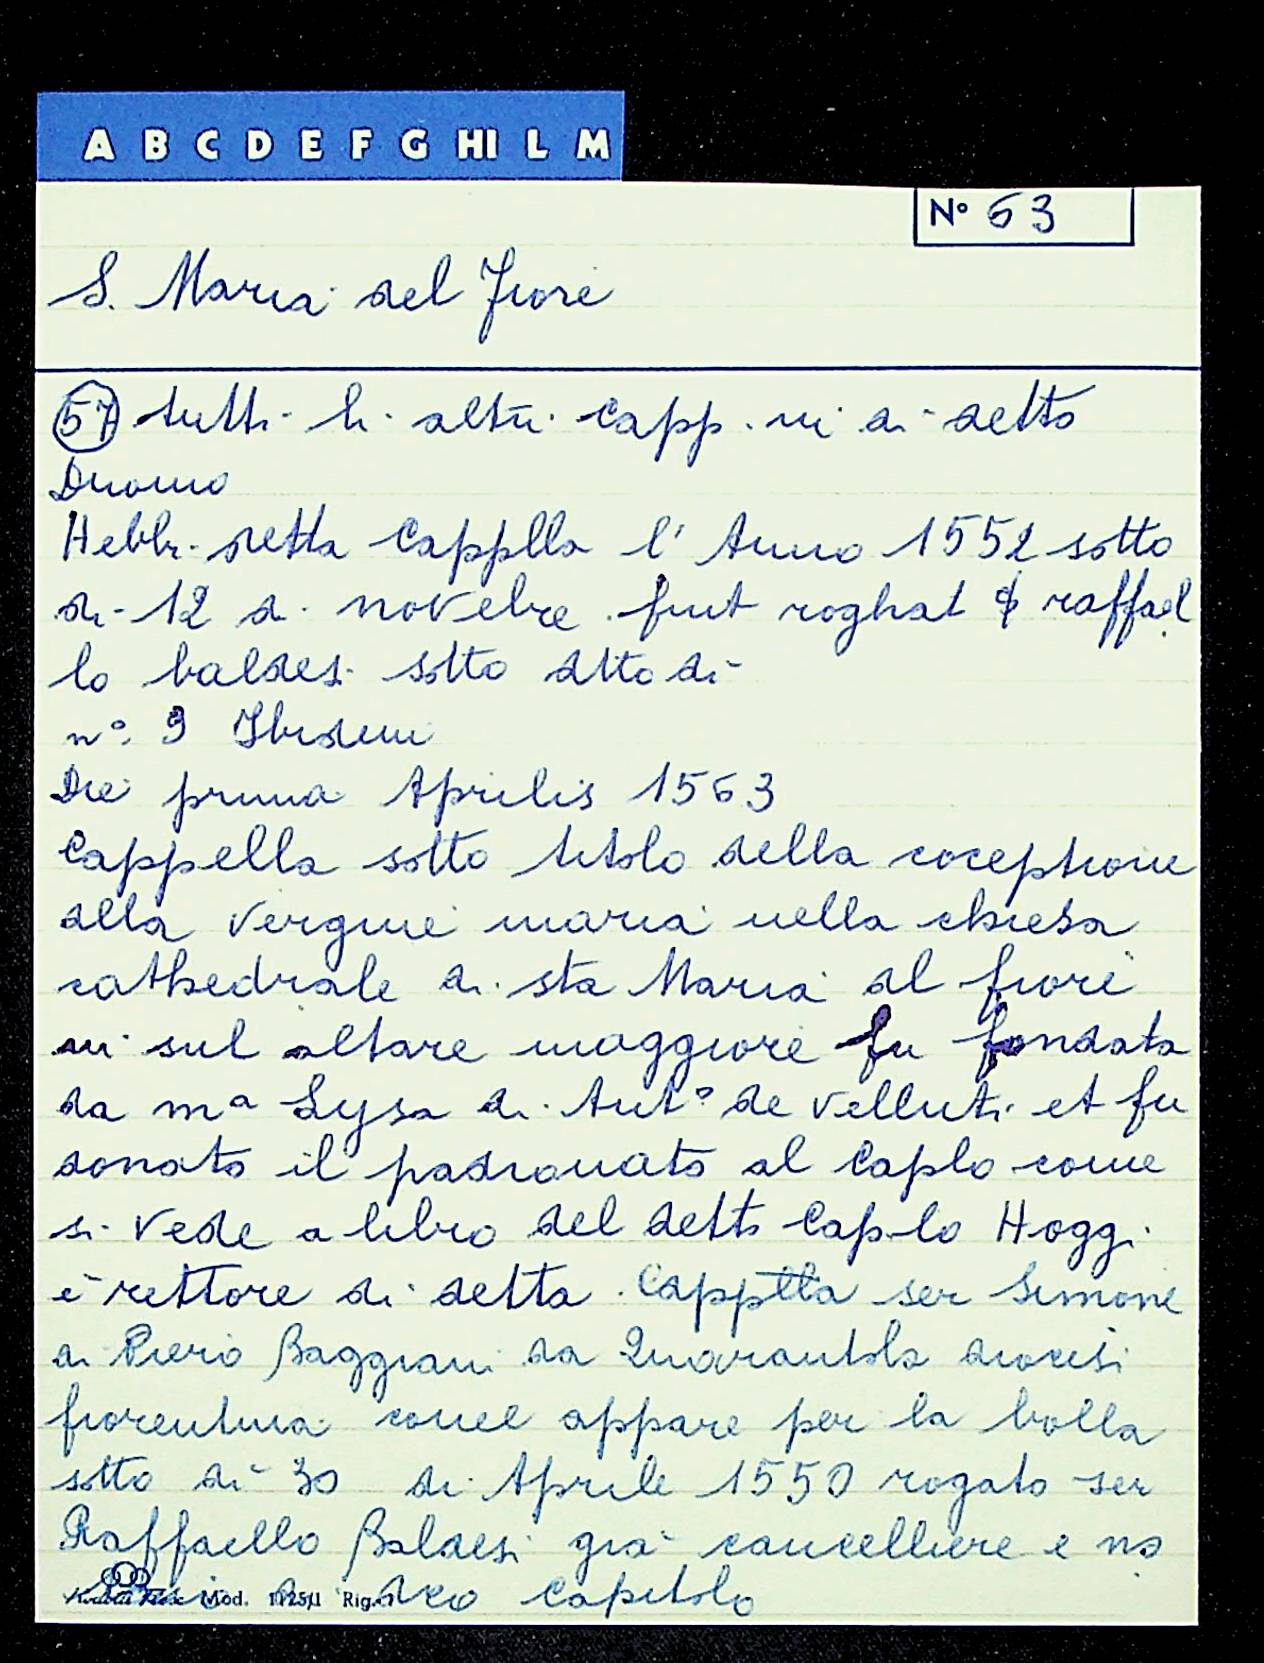 A B C D E F G HI L M
N° 63
S. Maria del Fiore
57 tutti li altri capp.ni di detto
Duomo
Hebbi detta Capplla l' Anno 1552 sotto
di 12 di novebre fuit roghat raffael
lo baldesi sotto dtto dì
n°. 9 Ibidem
Die prima Aprilis 1563
Cappella sotto titolo della coceptione
dlla vergine maria nella chiesa
cathedrale di sta Maria dl fiore
in sul altare maggiore fu fondata
da mª Lysa di Antº de velluti et fu
donato il padronato al Caplo come
si vede a libro del detto Caplo Hoggi
è rettore di detta Capplla ser Simone
di Piero Baggiani da Quarantola diocesi
fiorentina come appare per la bolla
sotto dì 30 di Aprile 1550 rogato ser
Raffaello Baldesi già cancelliere e no
Mod. Rig. dco capitolo